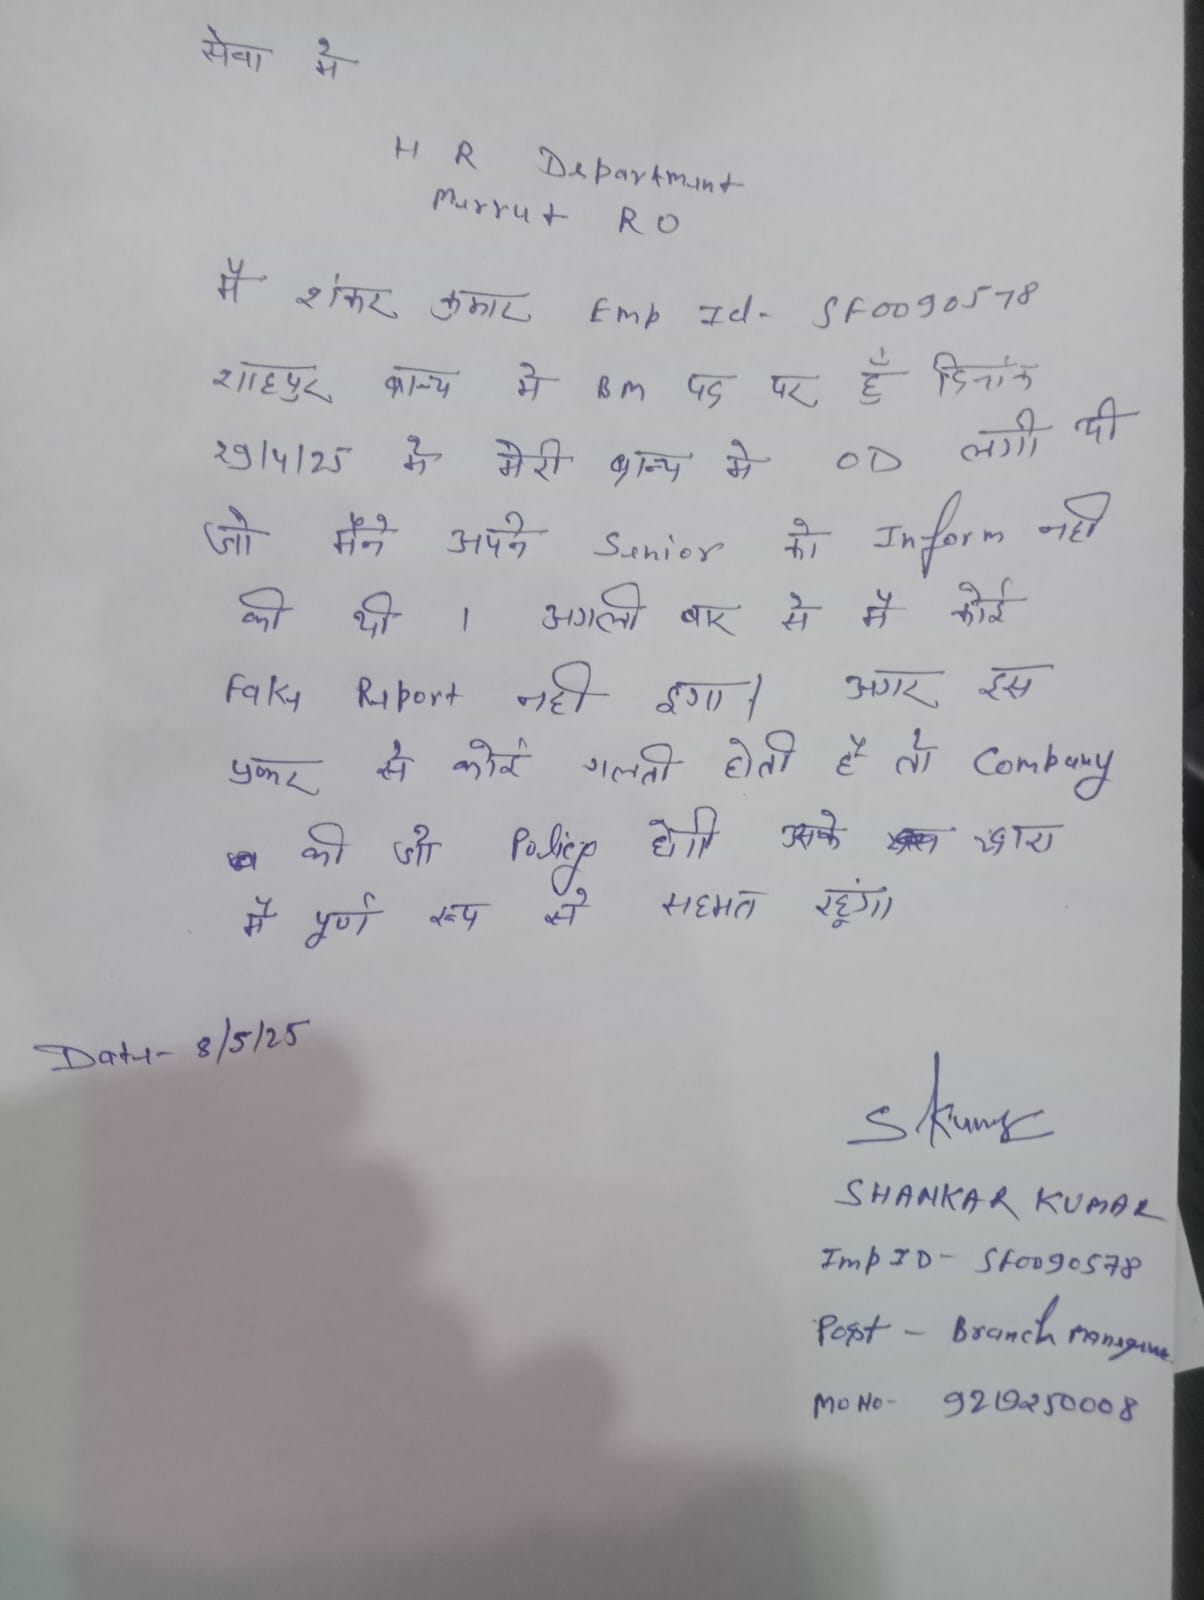 सेवा मे
H R Department
Merrut RO
मै शंकर कुमार Emp Id- SF0090578
शाहपुर ब्रान्च मे BM पद पर हुँ दिनांक
29/4/25 मे मेरी ब्रान्च मे OD लगी थी
जो मैने अपने Senior को Inform नही
की थी । अगली बार से मै कोई
Fake Report नही दुंगा । अगर इस
प्रकार से कोई गलती होती है तो Company
की जो Policy होगी उसके द्वारा
मै पूर्ण रूप से सहमत रहूंगा
Date- 8/5/25
S Kumar
SHANKAR KUMAR
Imp ID- SF0090578
Post - Branch Manager
Mo No- 9219250008